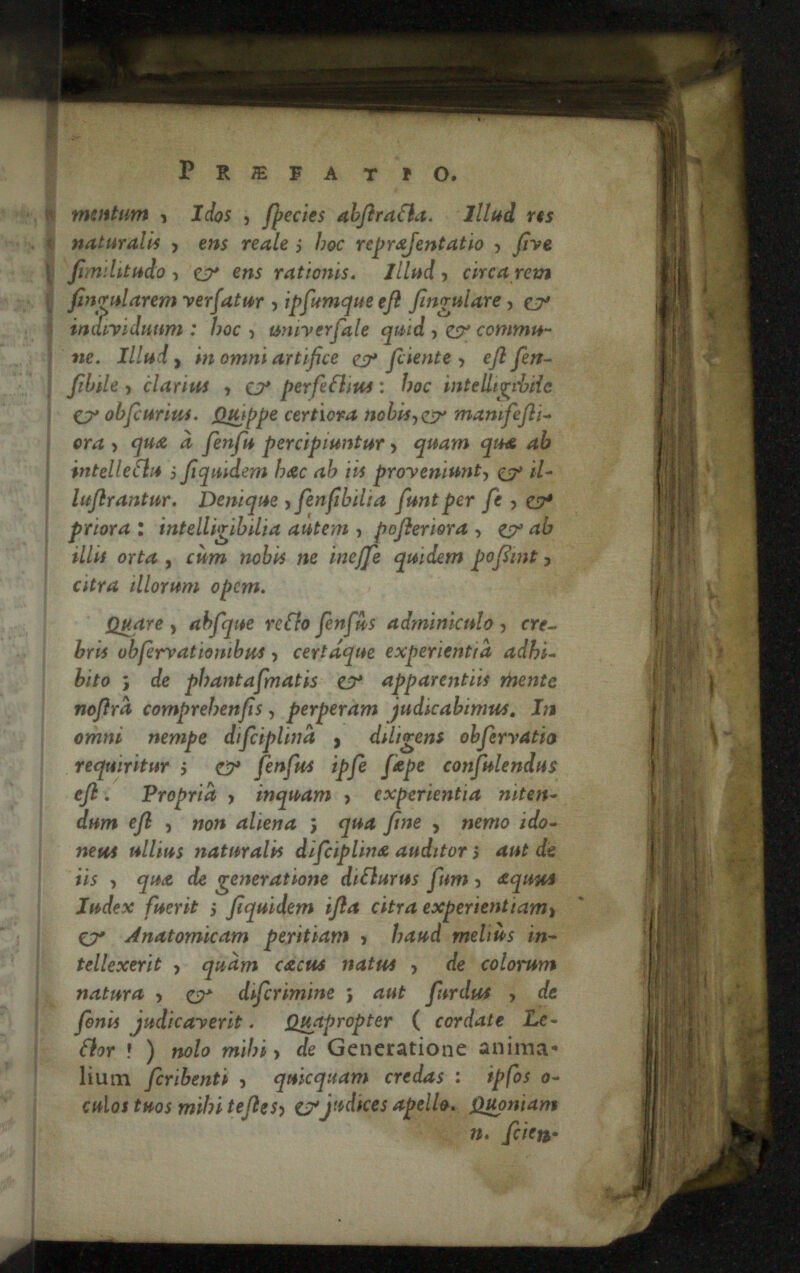 PRÆFATIO.
mentum, Idos, ſpecies abſtracta. Illud res
naturalis, ens reale; hoc repræſentatio, ſive
ſimilitudo, & ens rationis. Illud, circa rem
ſingularem verſatur, ipſumque eſt ſingulare, &
individuum: hoc, univerſale quid, & commu-
ne. Illud, in omni artifice & ſciente, eſt ſen-
ſibile, clarius, & perfectius: hoc intelligibile
& obſcurius. Quippe certiora nobis, & manifeſti-
ora, quæ à ſenſu percipiuntur, quam quæ ab
intellectu; ſiquidem hæc ab iis proveniunt, & il-
luſtrantur. Denique, ſenſibilia ſunt per ſe, &
priora: intelligibilia autem, poſteriora, & ab
illis orta, cùm nobis ne ineſſe quidem poſsint,
citra illorum opem.
Quare, abſque recto ſenſûs adminiculo, cre-
bris obſervationibus, certáque experientiâ adhi-
bito; de phantaſmatis & apparentiis mente
noſtrâ comprehenſis, perperàm judicabimus. In
omni nempe diſciplinâ, diligens obſervatio
requiritur; & ſenſus ipſe ſæpe conſulendus
eſt. Propriâ, inquam, experientia niten-
dum eſt, non aliena; qua ſine, nemo ido-
neus ullius naturalis diſciplinæ auditor; aut de
iis, quæ de generatione dicturus ſum, æquus
Iudex fuerit; ſiquidem iſta citra experientiam,
& Anatomicam peritiam, haud meliùs in-
tellexerit, quàm cæcus natus, de colorum
natura, & diſcrimine; aut ſurdus, de
ſonis judicaverit. Quapropter (cordate Le-
ctor!) nolo mihi, de Generatione anima-
lium ſcribenti, quicquam credas: ipſos o-
culos tuos mihi teſtes, & judices apello. Quoniam
n. ſcien-